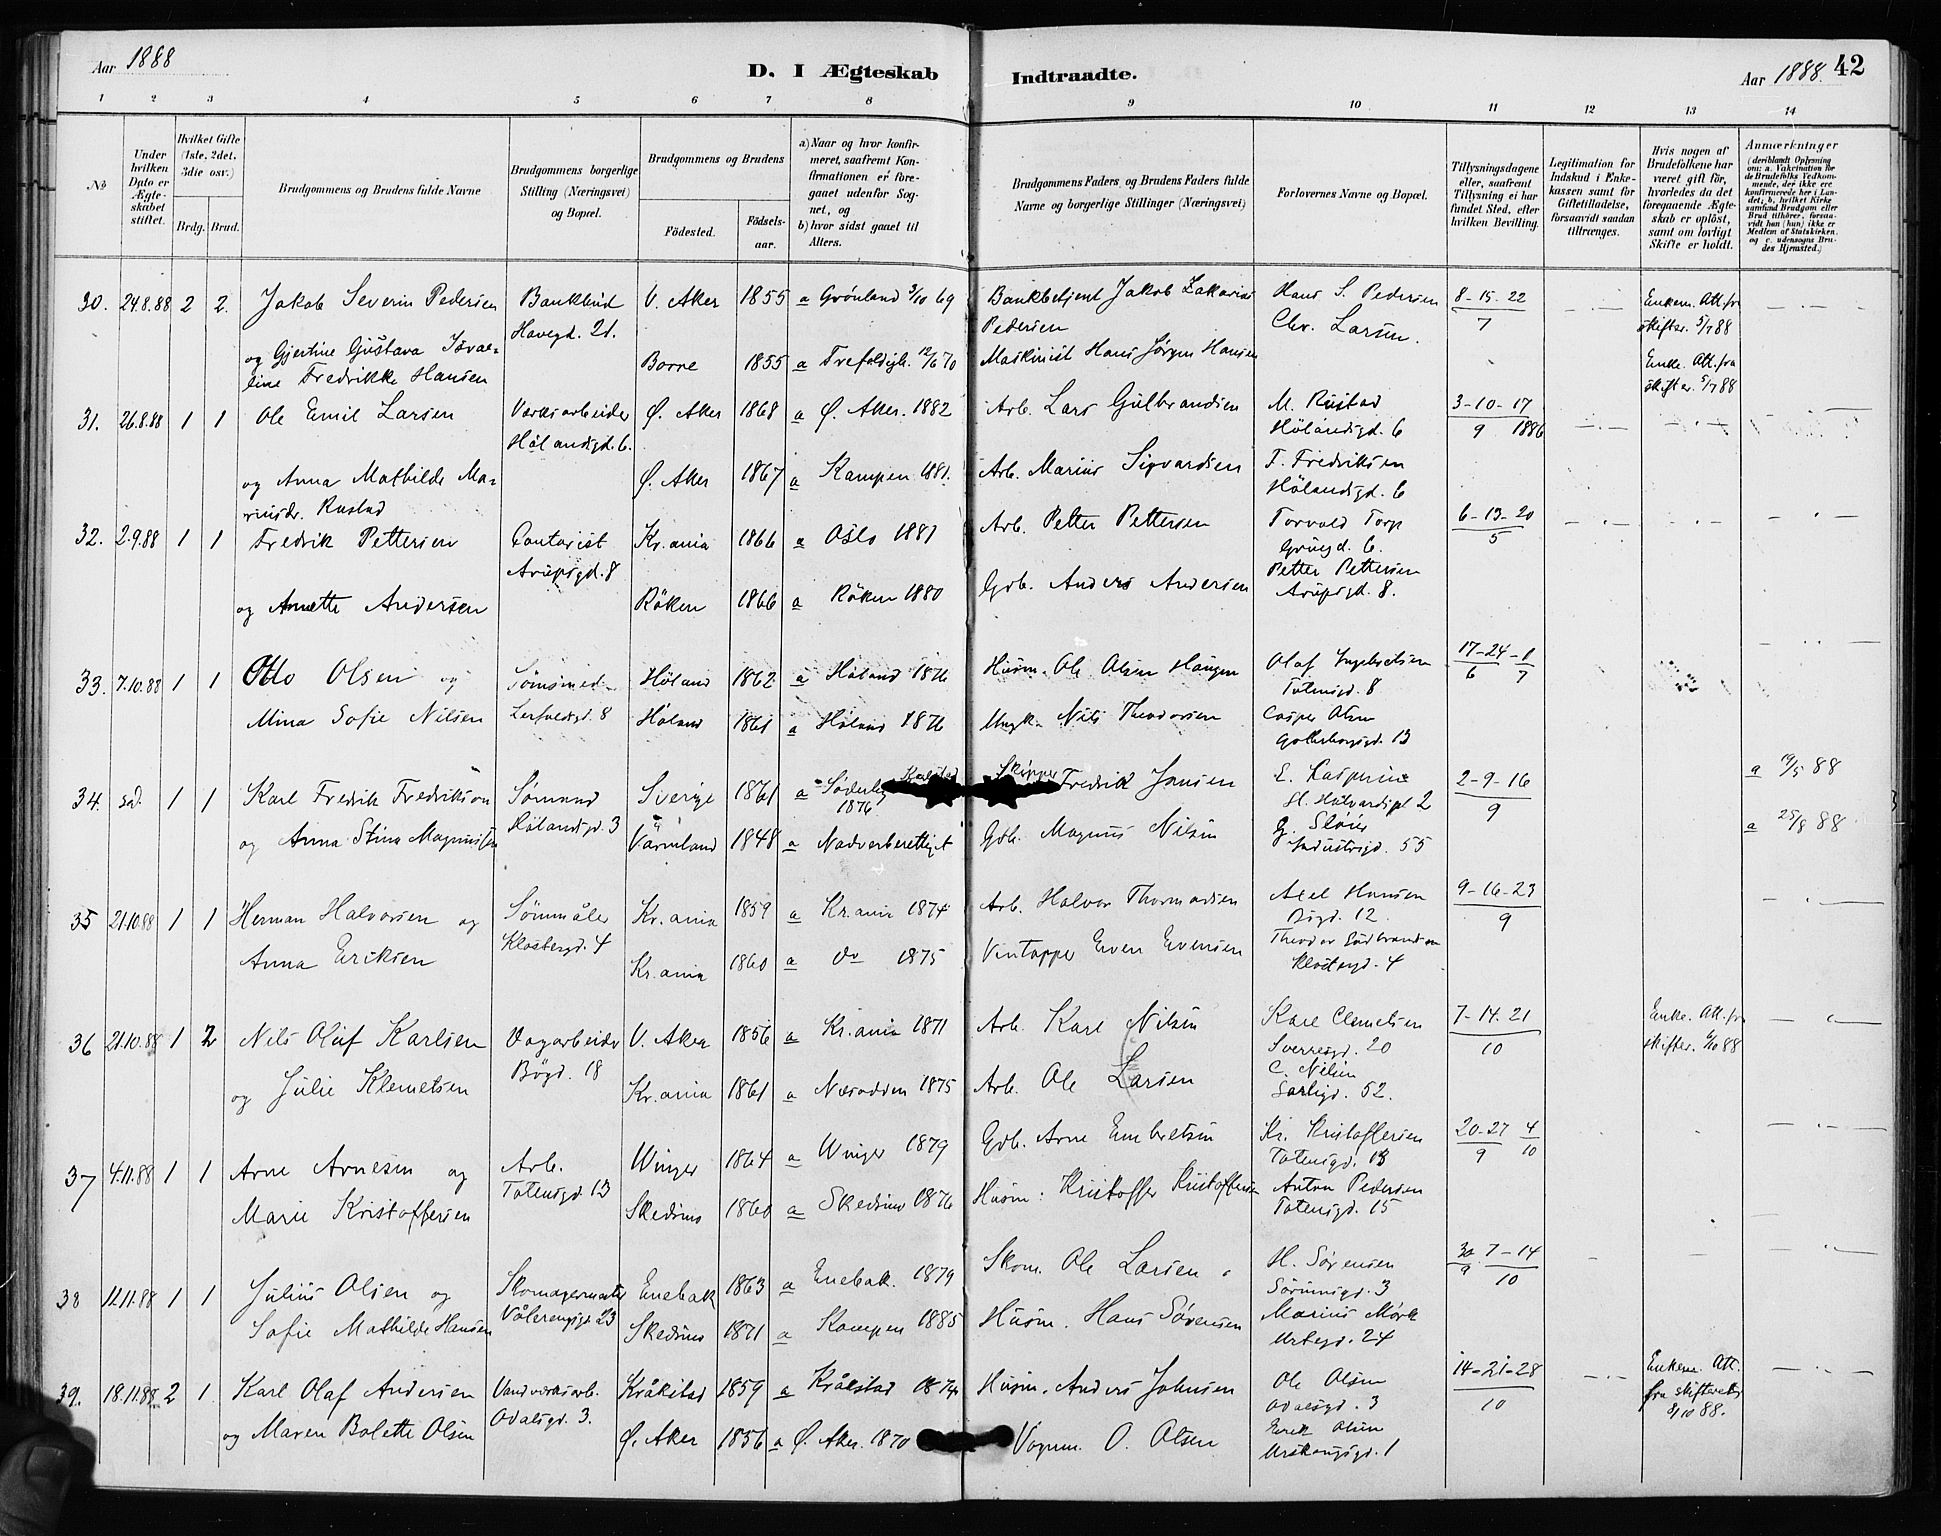 Aar 1888
D. I Ægteskab
Indtraadte.
Aar 1888. 42
1 2 3 4 5 6 7 8 9 10 11 12 13 14
№
Under hvilken Dato er Ægteskabet stiftet.
Hvilket Gifte (1ste, 2det, 3die osv.)
Brdg. Brud.
Brudgommens og Brudens fulde Navne
Brudgommens borgerlige Stilling (Næringsvei) og Bopæl.
Brudgommens og Brudens
Födested.
Födselsaar.
a) Naar og hvor konfirmeret, saafremt Konfirmationen er foregaaet udenfor Sognet, og
b) hvor sidst gaaet til Alters.
Brudgommens Faders og Brudens Faders fulde Navne og borgerlige Stillinger (Næringsvei)
Forlovernes Navne og Bopæl.
Tillysningsdagene eller, saafremt Tillysning ei har fundet Sted, efter hvilken Bevilling.
Legitimation for Indskud i Enkekassen samt for Giftetilladelse, forsaavidt saadan tiltrænges.
Hvis nogen af Brudefolkene har været gift för, hvorledes da det foregaaende Ægteskab er oplöst, samt om lovligt Skifte er holdt.
Anmærkninger (deriblandt Oplysning om: a. Vakcination for de Brudefolks Vedkommende, der ikke ere konfirmerede her i Landet; b. hvilket Kirkesamfund Brudgom eller Brud tilhörer, forsaavidt han (hun) ikke er Medlem af Statskirken, og c. udensogns Brudes Hjemsted.)
30. 24.8.88 2 2. Jakob Severin Pedersen Bankbud V. Aker 1855 a Grönland 3/10 69 Bankbetjent Jakob Zakarias Hans S. Pedersen 8-15-22 Enkem. Att. fra
Havegd. 21. Pedersen Chr. Larsen. 7 skifter. 5/7 88
og Gjertine Gustava Israeline Fredrikke Hansen Borre 1855 a Trefoldigh. 12/6 70 Maskinist Hans Jørgen Hansen Enke. Att. fra
skifter. 5/7 88
31. 26.8.88 1 1 Ole Emil Larsen Værksarbeider Ø. Aker 1868 a Ø. Aker. 1882 Arb. Lars Gulbrandsen M. Rustad 3-10-17
Hølandsgd. 6. Hølandsgd. 6 9 1886
og Anna Mathilde Ma- Ø. Aker 1867 a Kampen 1881. Arb. Marius Sigvardsen F. Fredriksen
riusdr. Rustad Hölandsgd. 6
32. 2.9.88 1 1 Fredrik Pettersen Contorist Kr.ania 1866 a Oslo 1881 Arb. Petter Pettersen Torvald Torp 6-13-20
Arupsgd. 8 Grüngd. 6. 5
og Annette Andersen Röken 1866 a Röken 1880 Gdb. Anders Andersen Petter Pettersen
Arupsgd. 8.
33. 7.10.88 1 1 Otto Olsen og Høland 1862 a Høland 1876 Husm. Ole Olsen Haugen Olaf Ingebretsen 17-24-1
Totensgd. 8 6 7
Mina Sofie Nilsen Høland 1861 a Høland 1876 Nils Theodorsen Casper Olsen
Gothenborgsgd. 13
34. s.d. 1 1 Karl Fredrik Fredrikson Sømand Sverige 1861 a Söderby Karlstad Skipper Fredrik Jonsen E. Kaspersen 2-9-16 a 19/5 88
Hölandsgd. 3 1876 St. Halvardspl 2 9
og Anna Stina Magnussen Värmland 1848 a Nadverberettiget Gdb. Magnus Nilsen a 25/8 88
Industrigd. 55
35 21.10.88 1 1 Herman Halvorsen og Kr.ania 1859 a Kr.ania 1874 Arb. Halvor Thormodsen Axel Hansen 9-16-23
Klostergd. 4 12. 9
Anna Eriksen Kr.ania 1860 a do 1875 Vintapper Even Evensen Theodor Gudbrandsen
Klostergd. 4
36 21.10.88 1 2 Nils Olaf Karlsen V. Aker 1856 a Kr.ania 1871 Arb. Karl Nilsen Karl Clemetsen 7-14-21 Enke. Att. fra
Bögd. 18 Sverresgd. 20 10 skifter. 6/10 88
og Julie Klemetsen Kr.ania 1861 a Næsodden 1875 Arb. Ole Larsen C. Nilsen
Sarsgd. 52.
37 4.11.88 1 1 Arne Arnesen og Arb. Winger 1864 a Winger 1879 Gdb. Arne Embretsen Kr. Kristoffersen 20-27 4
Totensgd. 13 Totensgd. 13 9 10
Marie Kristoffersen Skedsmo 1860 a Skedsmo 1876 Husm. Kristoffer Kristoffersen Anton Pedersen
Totensgd. 15
38 11.11.88 1 1 Julius Olsen og Skomagermester Enebak 1863 a Enebak. 1879 Skom. Ole Larsen H. Sørensen 30 7-14
Vålerengsgd. 23 Sörumsgd. 3 9 10
Sofie Mathilde Hansen Skedsmo 1871 a Kampen 1885 Husm. Hans Sørensen Marius Mörk
Urtegd. 24
39. 18.11.88 2 1 Karl Olaf Andersen Vandværksarb. Kråkstad 1859 a Kråkstad 1874 Husm. Anders Johnsen Ole Olsen 14-21-28 Enkem. Att.
Odalsgd. 3. Odalsgd. 3 10 fra skifteretten
8/10 88.
og Maren Bolette Olsen Ø. Aker 1856 a Ø. Aker. 1870 Vognm. O. Olsen Erik Olsen
Urskougsgd. 1